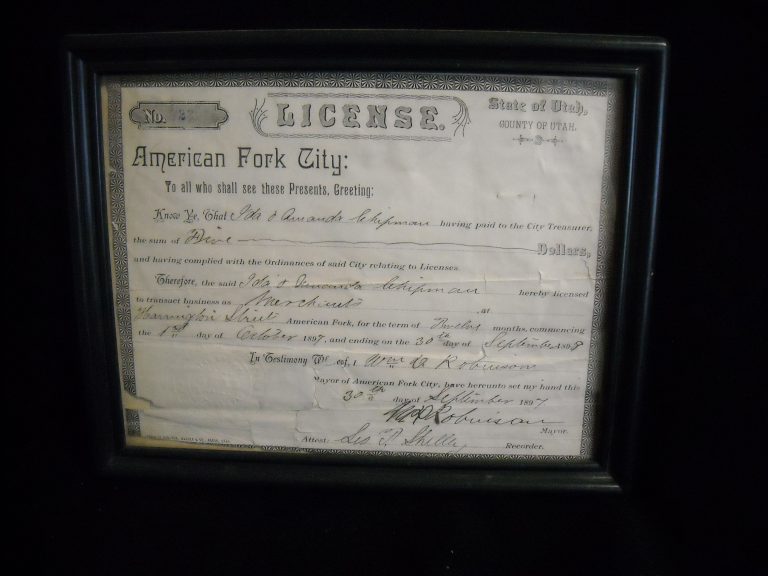 No.
LICENSE.
State of Utah,
COUNTY OF UTAH.
American Fork City:
To all who shall see these Presents, Greeting:
Know Ye, That Ida & Amanda Chipman having paid to the City Treasurer,
the sum of Five Dollars,
and having complied with the Ordinances of said City relating to Licenses
Therefore, the said Ida & Amanda Chipman hereby licensed
to transact business as Merchants at
Harrington Street American Fork, for the term of Twelve months, commencing
the 1st day of October 1897, and ending on the 30th day of September 1898
In Testimony Wh eof, I Wm D Robinson
Mayor of American Fork City, have hereunto set my hand this
30th day of September 1897
Wm D Robinson
Mayor.
Attest Geo. T. Shelley
Recorder.